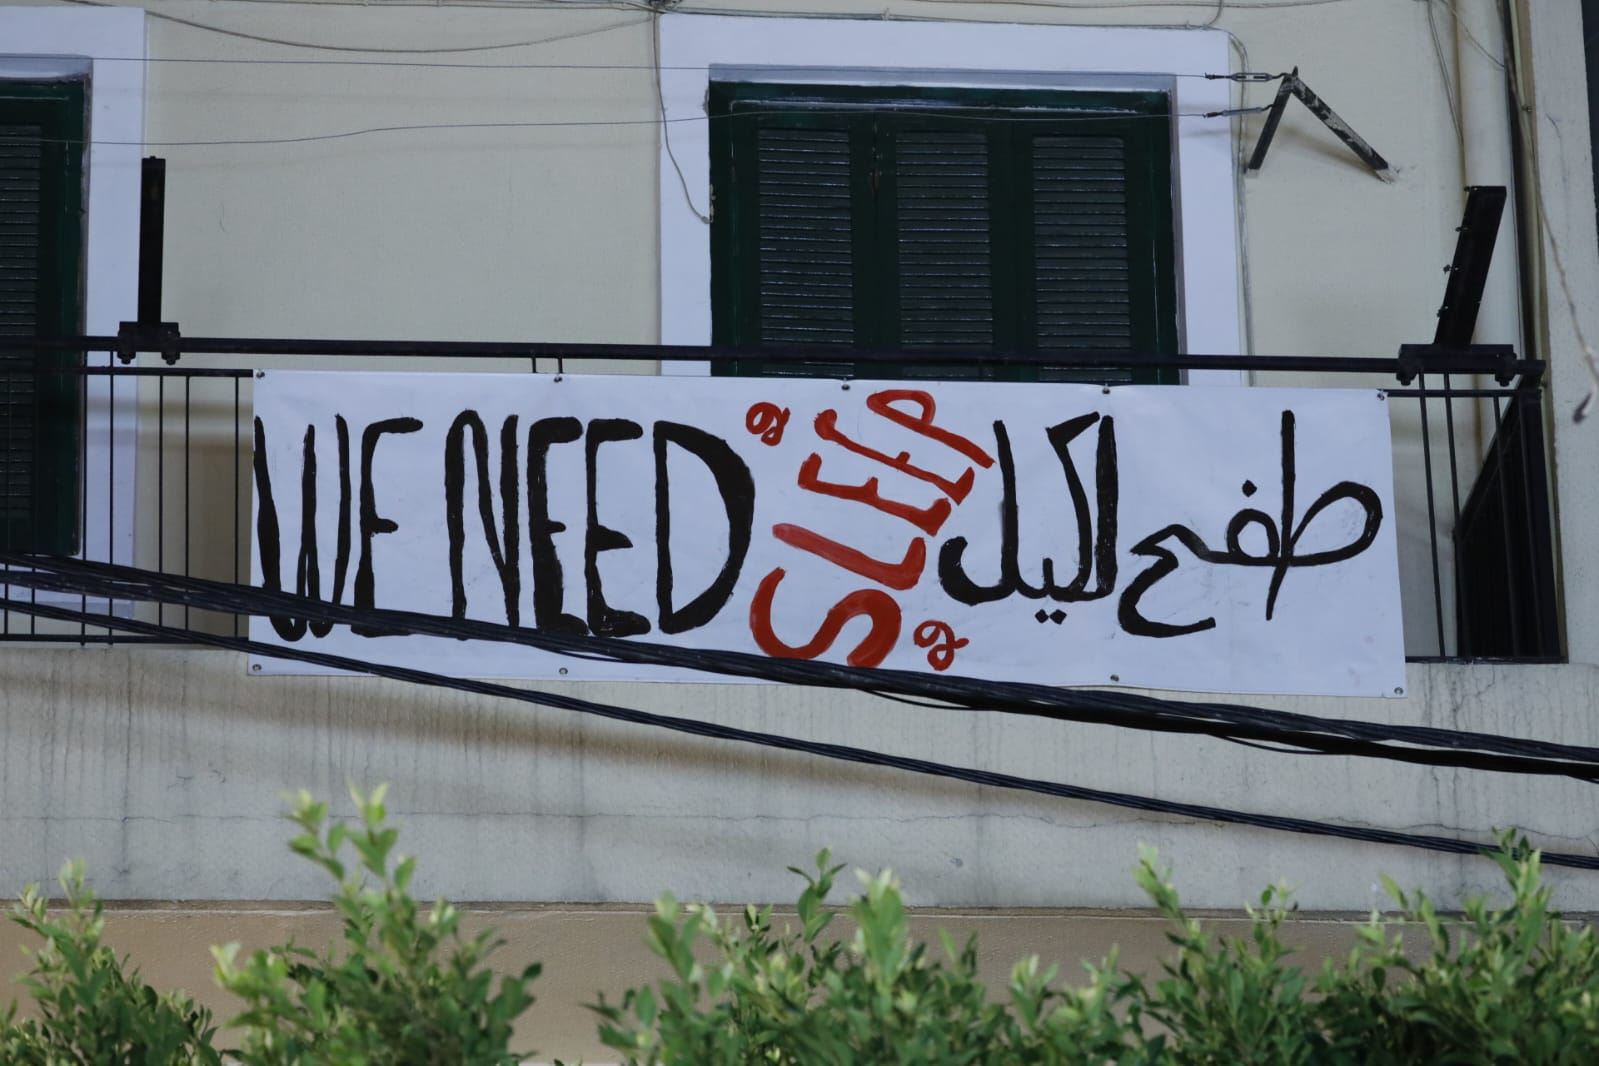 WE NEED SLEEP
طفح الكيل